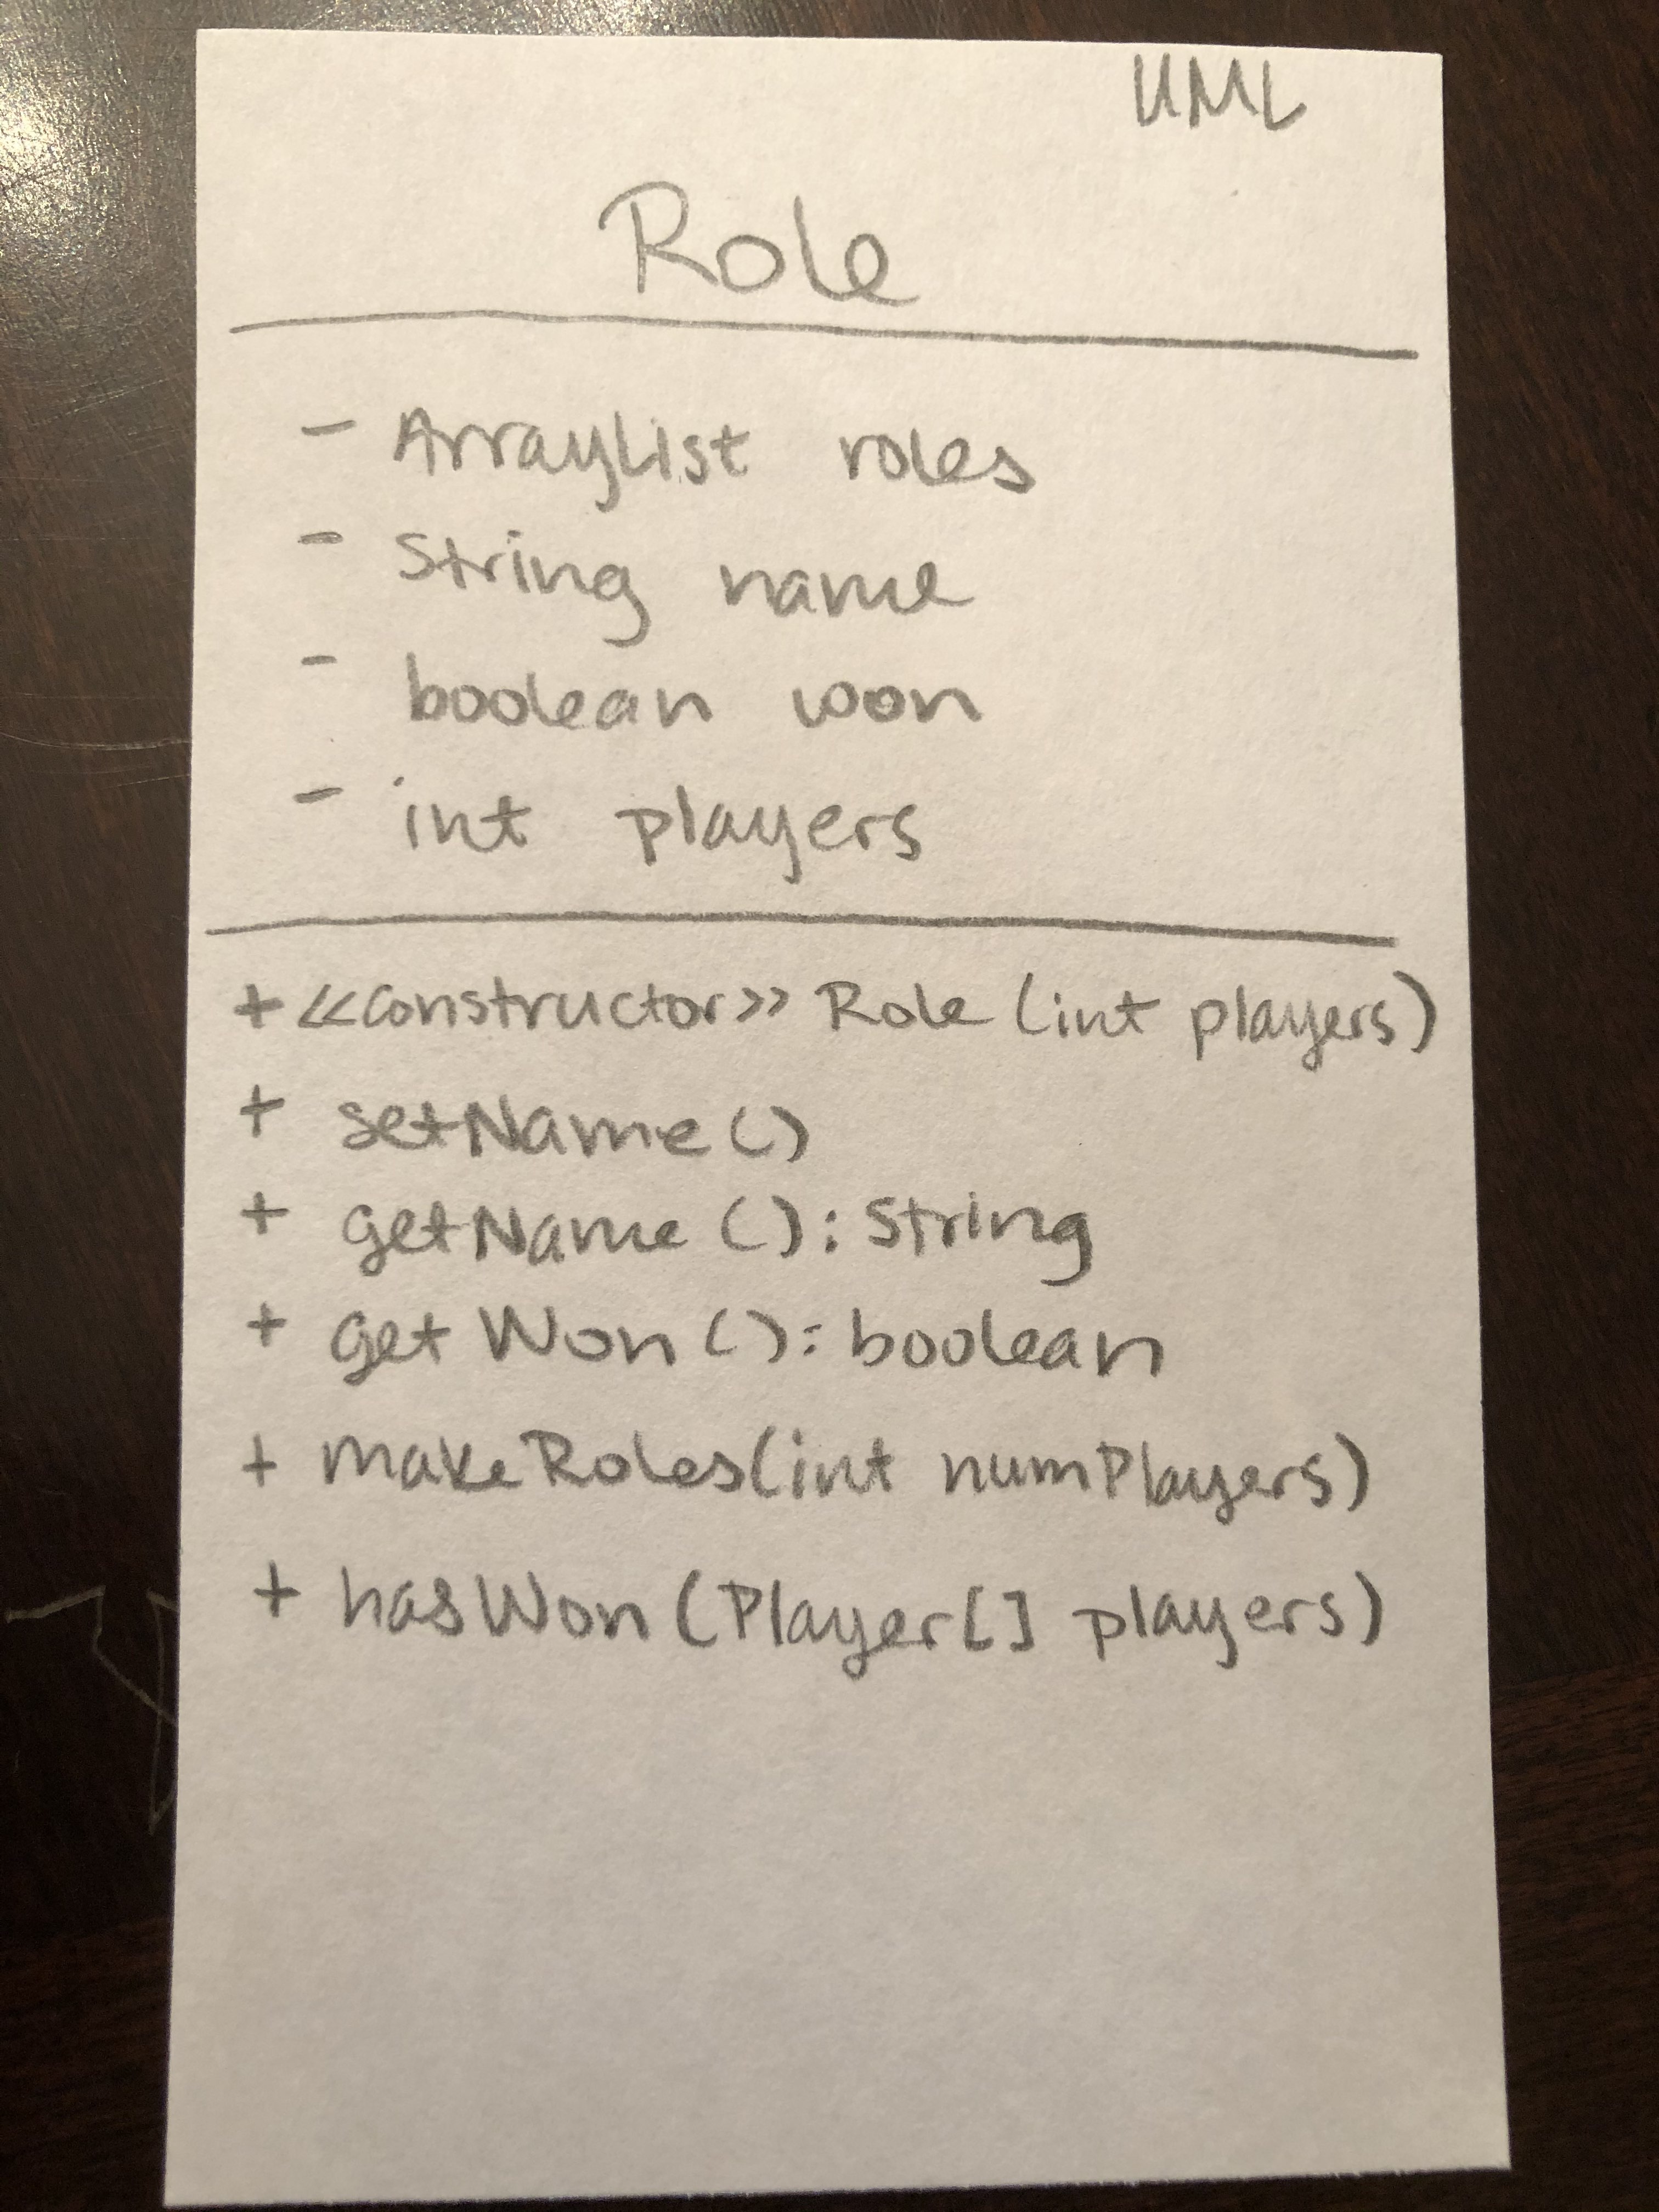 UML
Role
- ArrayList roles
- String name
- boolean won
- int players
+ <<constructor>> Role (int players)
+ setName()
+ getName(): String
+ getWon(): boolean
+ makeRoles(int numPlayers)
+ hasWon(Player[] players)